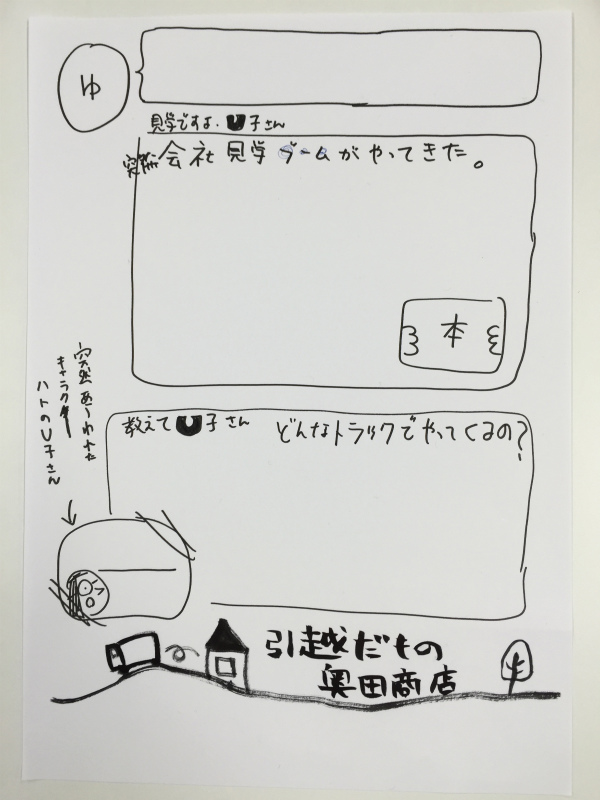 ゆ
見学ですよ。U子さん
突然会社見学ブームがやってきた。
本
突然あらわれた
キャラクター
ハトのU子さん
教えてU子さん どんなトラックでやってくるの?
引越だもの
奥田商店